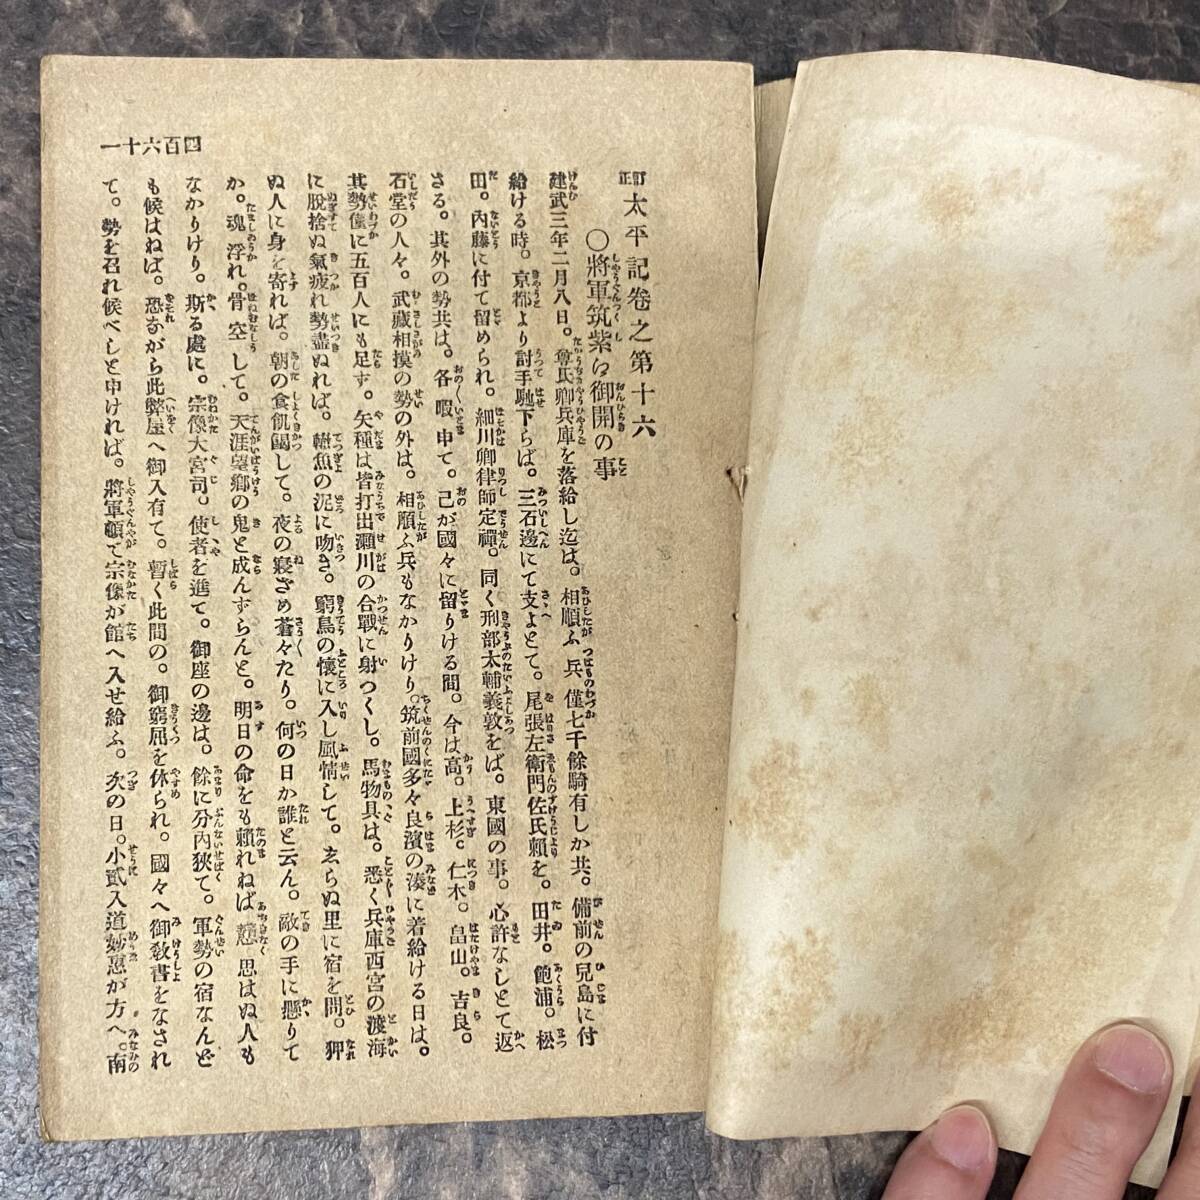 四百六十一
訂正太平記卷之第十六
〇將軍筑紫に御開の事
建武三年二月八日。尊氏卿兵庫を落給し迄は。相順ふ兵僅七千餘騎有しか共。備前の兒島に付
給ける時。京都より討手馳下らば。三石邊にて支よとて。尾張左衛門佐氏頼を。田井。飽浦。松
田。內藤に付て留められ。細川卿律師定禪。同く刑部太輔義敦をば。東國の事。心許なしとて返
さる。其外の勢共は。各暇申て。己が國々に留りける間。今は高。上杉。仁木。畠山。吉良。
石堂の人々。武藏相摸の勢の外は。相順ふ兵もなかりけり。筑前國多々良濱の湊に着給ける日は。
其勢僅に五百人にも足ず。矢種は皆打出瀬川の合戰に射つくし。馬物具は。悉く兵庫西宮の渡海
に脫捨ぬ氣疲れ勢盡ぬれば。轍魚の泥に吻き。窮鳥の懷に入し風情して。ゑらぬ里に宿を問。狎
ぬ人に身を寄れば。朝の食飢渴して。夜の寢ざめ蒼々たり。何の日か誰と云ん。敵の手に懸りて
か。魂浮れ。骨空して。天涯望鄉の鬼と成んずらんと。明日の命をも賴れねば 思はぬ人も
なかりけり。斯る處に。宗像大宮司。使者を進て。御座の邊は。餘に分內狹て。軍勢の宿なんど
も候はねば。恐ながら此弊屋へ御入有て。暫く此間の。御窮屈を休られ。國々へ御敎書をなされ
て。勢を召れ候べしと申ければ。將軍頓て宗像が館へ入せ給ふ。次の日。小貳入道妙惠が方へ。南